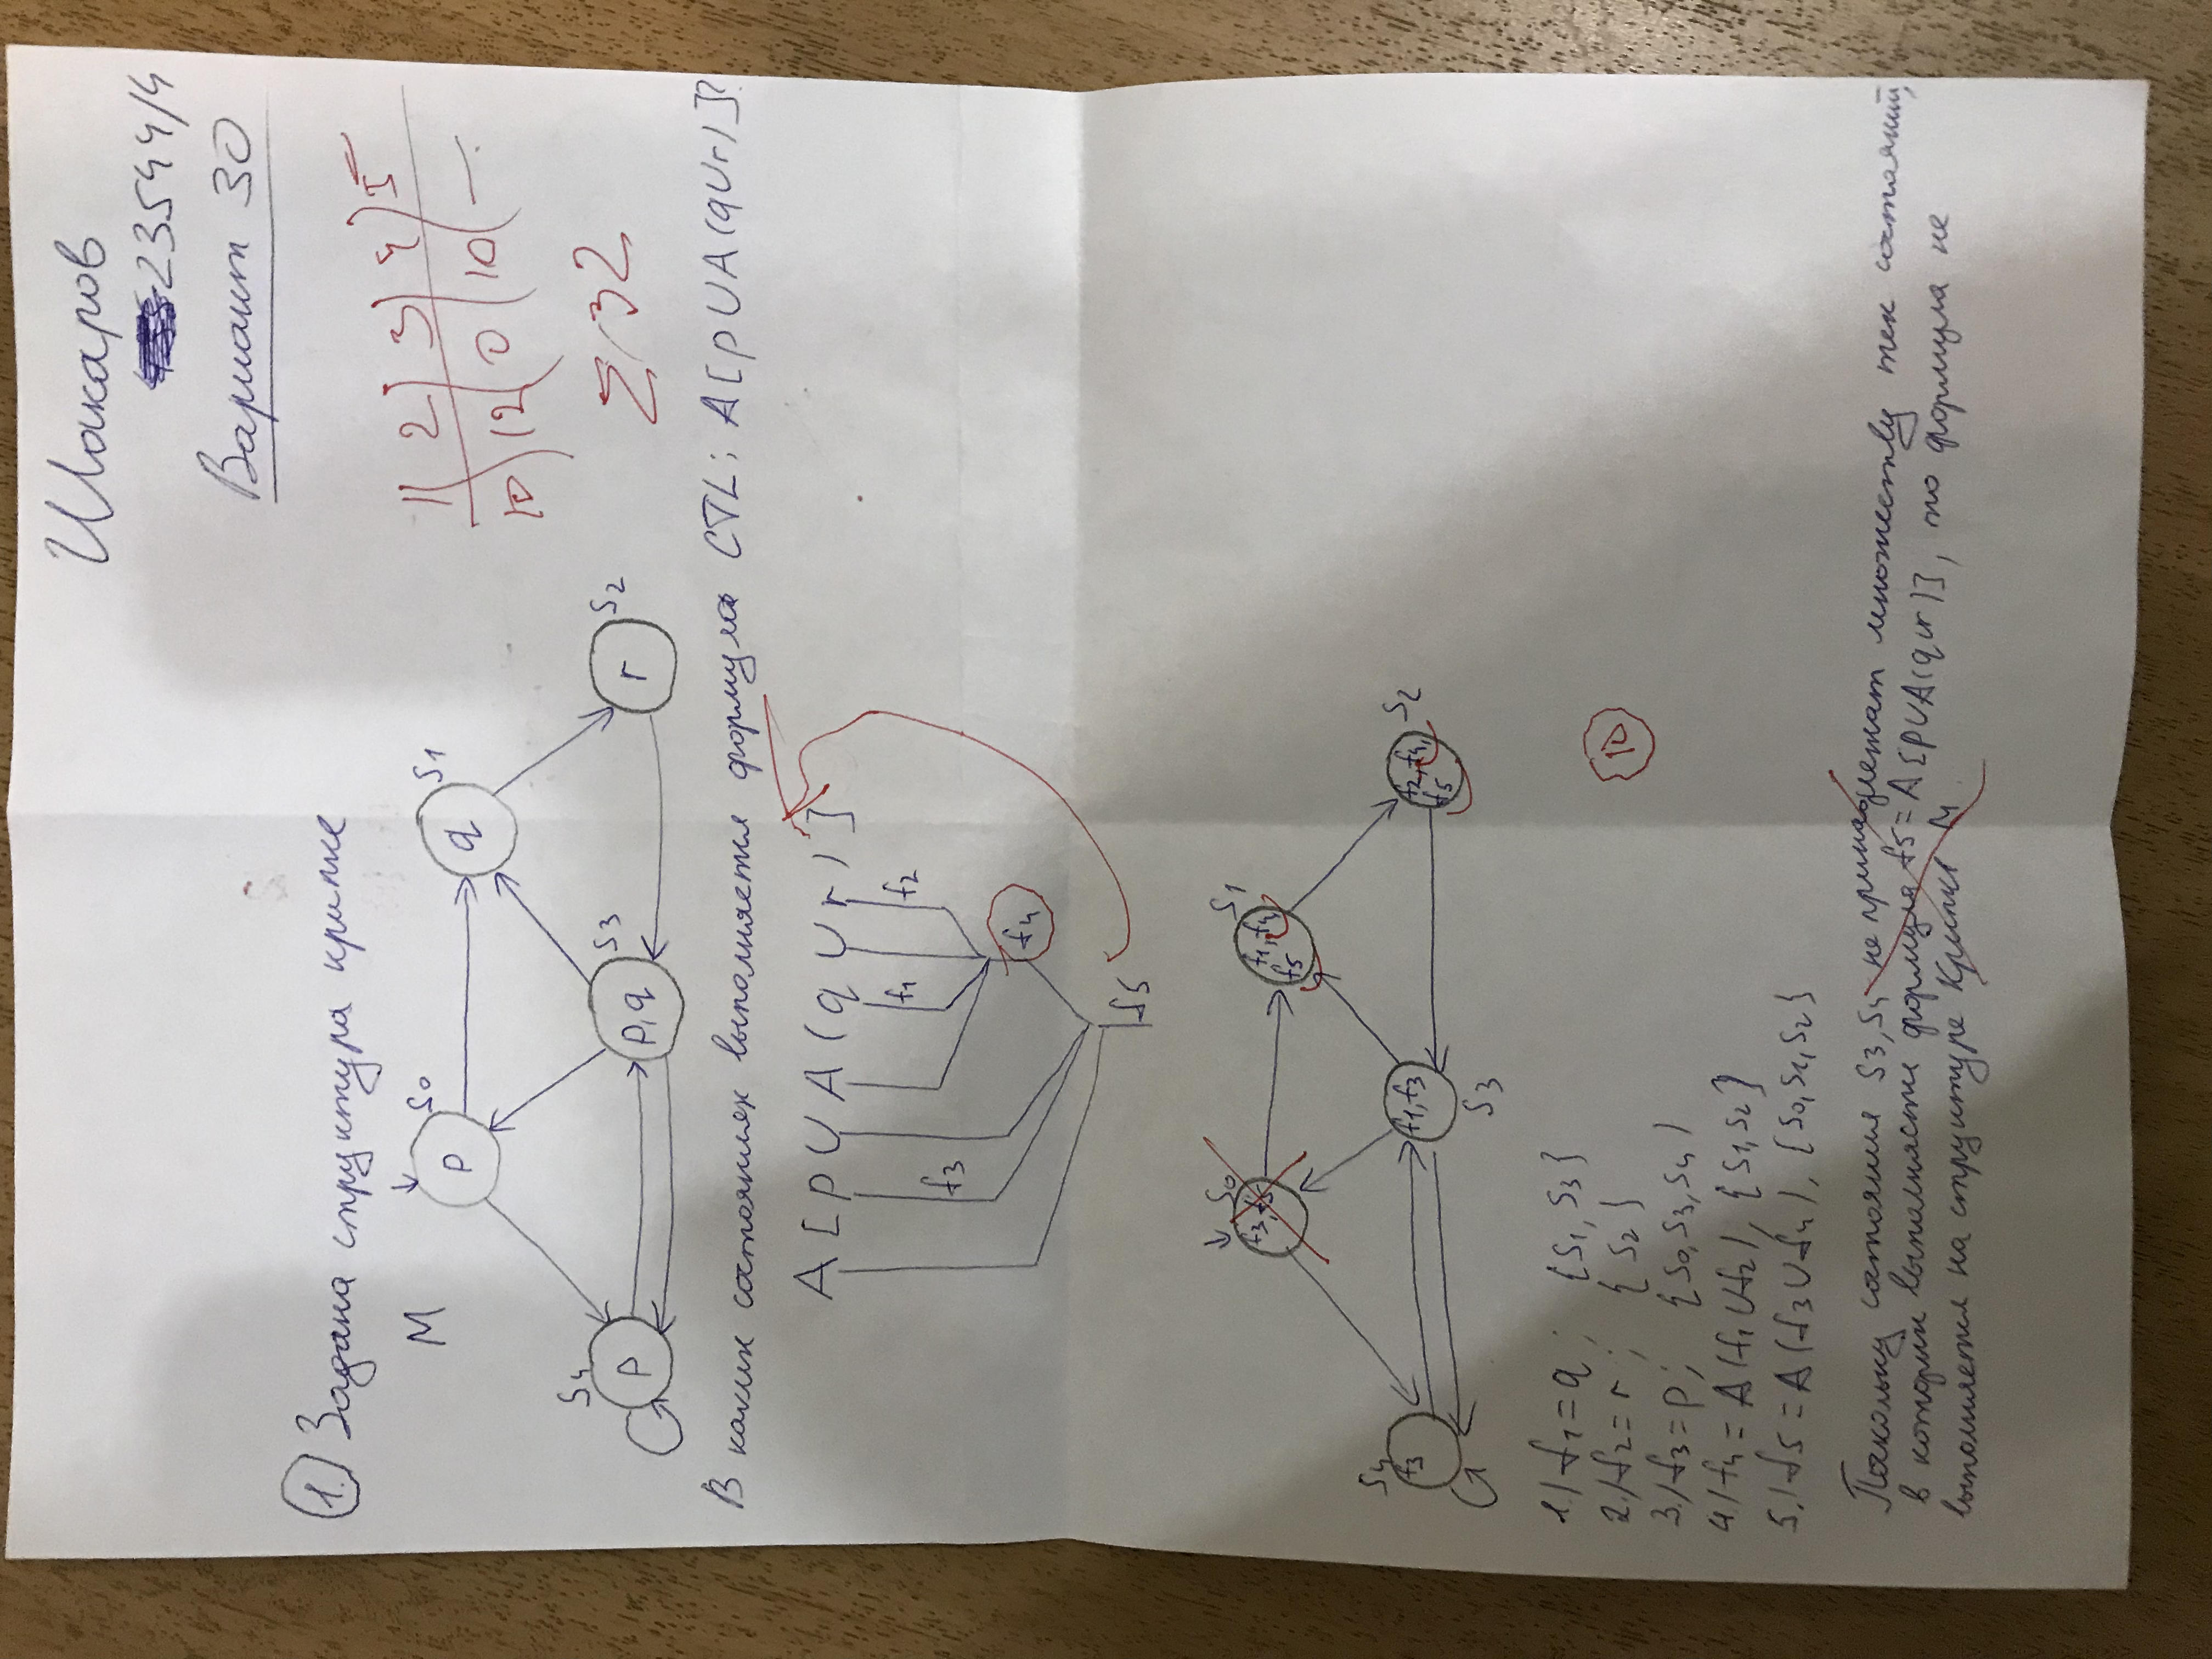 Шакаров
23544/4
Вариант 30
1. Задана структура крипке
M
p S0
q S1
S4 p
p,q S3
r S2
1 2 3 4 5
10 12 0 10 —
Σ 32
В каких состояниях выполняется формула CTL: A[pUA(qUr)]?
A[pUA(qUr)]
f1 f2
f3
f4
f5
S0 f3, f5
S1 f1, f4, f5
S4 f3
f1, f3 S3
f2, f4, f5 S2
1./ f1 = q; {S1, S3}
2./ f2 = r; {S2}
3./ f3 = p; {S0,S3,S4}
4./ f4 = A(f1Uf2), {S1,S2}
5./ f5 = A(f3Uf4), {S0,S1,S2}
10
Поскольку состояния S3,S4 не принадлежат множеству тех состояний,
в котором выполняется формула f5 = A[pUA(qUr)], то формула не
выполняется на структуре Крипке M